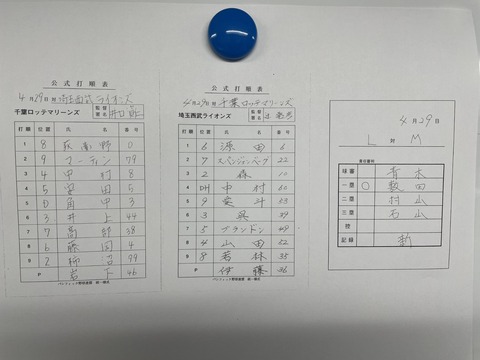 公式打順表
4月29日対埼玉西武ライオンズ
千葉ロッテマリーンズ 監督署名 井口
打順 位置 氏名 番号
1 8 荻野 0
2 9 マーティン 79
3 4 中村 8
4 5 安田 5
5 D 角中 3
6 3 井上 44
7 7 高部 38
8 6 藤岡 4
9 2 柿沼 99
P 岩下 46
パシフィック野球連盟 統一様式
公式打順表
4月29日対千葉ロッテマリーンズ
埼玉西武ライオンズ 監督署名 辻
打順 位置 氏名 番号
1 6 源田 6
2 7 スパンジェンバーグ 22
3 2 森 10
4 DH 中村 60
5 9 愛斗 53
6 3 呉 39
7 5 ブランドン 49
8 4 山田 52
9 8 若林 35
P 伊藤 36
パシフィック野球連盟 統一様式
4月29日
L 対 M
責任審判
球審 青木
一塁 ○ 敷田
二塁 村山
三塁 石山
控
記録 新